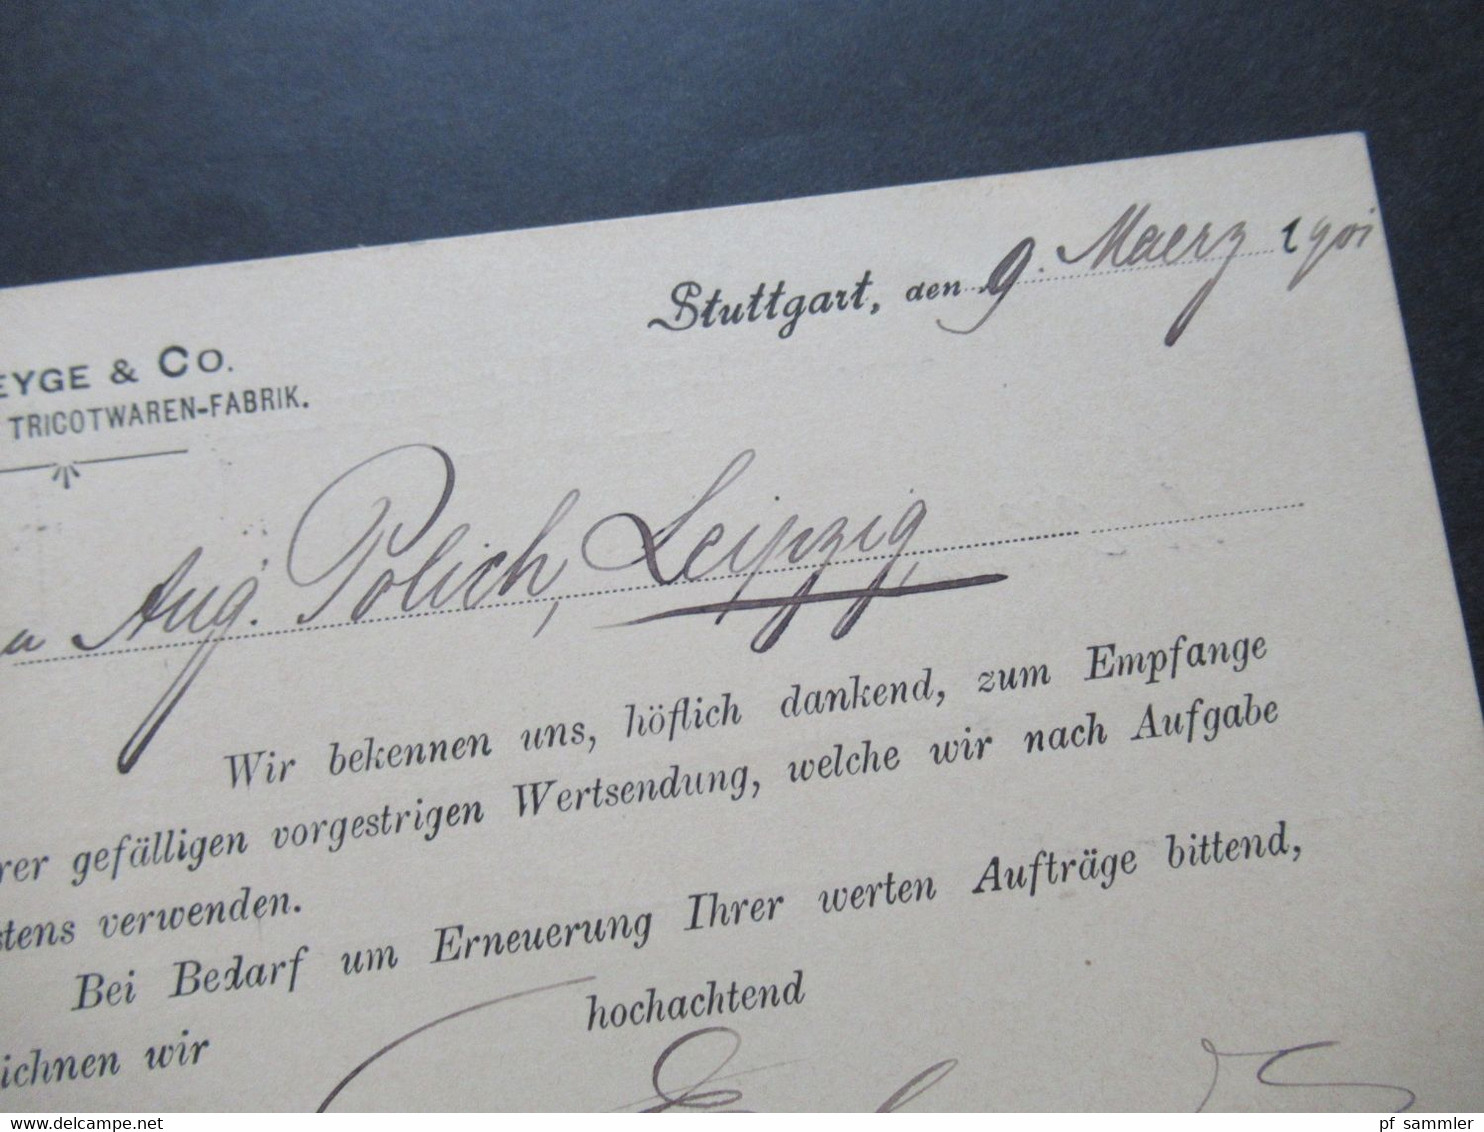 Stuttgart, den 9. Maerz 1901
EYGE & CO.
TRICOTWAREN-FABRIK.
Aug. Polich, Leipzig,
Wir bekennen uns, höflich dankend, zum Empfange
rer gefälligen vorgestrigen Wertsendung, welche wir nach Aufgabe
stens verwenden.
Bei Bedarf um Erneuerung Ihrer werten Aufträge bittend,
ichnen wir
hochachtend
www.delcampe.net
pf_sammler